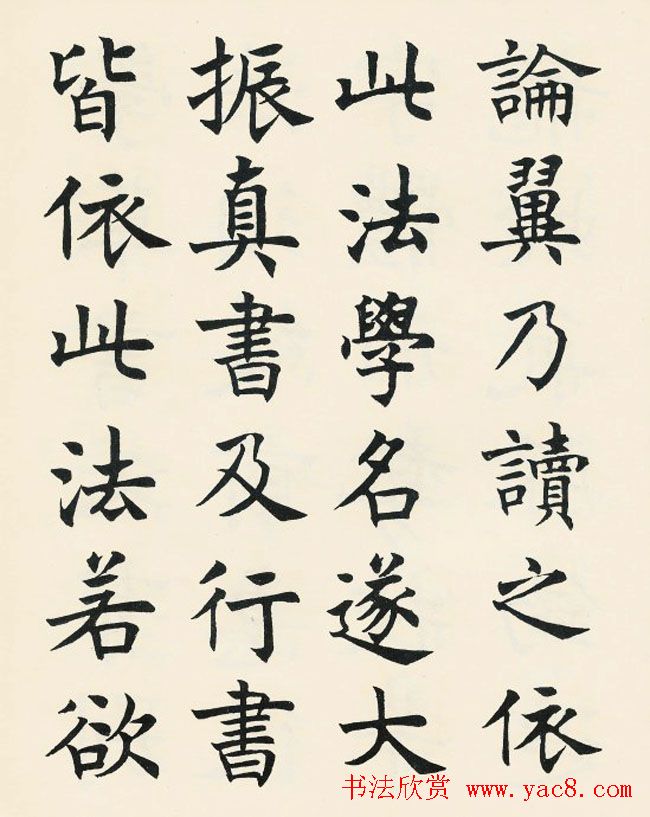 論翼乃讀之依
此法學名遂大
振真書及行書
皆依此法若欲
书法欣赏 www.yac8.com